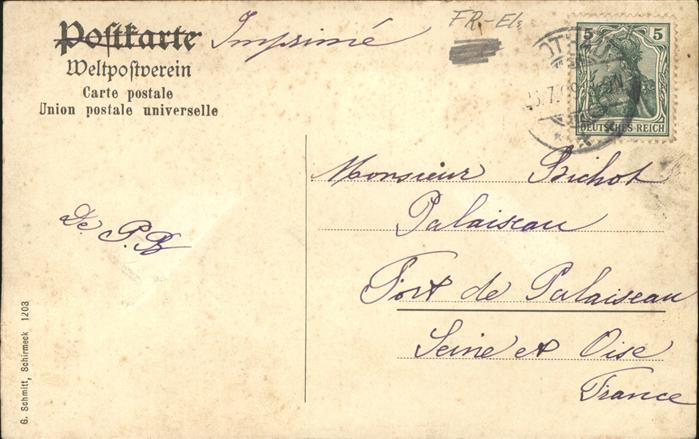 Postkarte Imprimé
FR-Els
Weltpostverein
Carte postale
Union postale universelle
5 5
DEUTSCHES REICH
Monsieur Bichot
Palaiseau
Fort de Palaiseau
Seine et Oise
France
De P.B
G. Schmitt, Schirmeck 1203